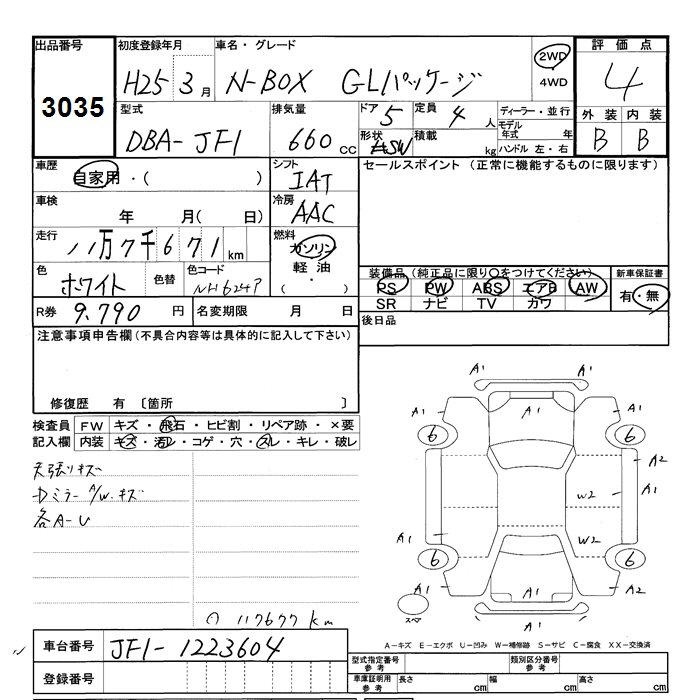 出品番号 初度登録年月 車名・グレード 評価点
3035 H25 3月 N-BOX GLパッケージ 2WD・4WD 4
型式 排気量 ドア 5 定員 4人 ディーラー・並行 外装 内装
DBA-JF1 660cc 形状 5W 積載 kg モデル年式 年 B B
ハンドル 左・右
車歴 自家用・( ) シフト IAT セールスポイント (正常に機能するものに限ります)
車検 年 月( 日) 冷房 AAC
走行 11万7千671km 燃料 ガソリン 軽油 ・( )
色 ホワイト 色替 色コード NH624P 装備品(純正品に限り○をつけてください) 新車保証書
PS PW ABS エアB AW 有・無
SR ナビ TV カワ
R券 9,790円 名変期限 月 日 後日品
注意事項申告欄(不具合内容等は具体的に記入して下さい)
修復歴 有 〔箇所 〕
検査員 FW キズ・飛石・ヒビ割・リペア跡・×要
記入欄 内装 キズ・汚レ・コゲ・穴・スレ・キレ・破レ
天張リキズ
DミラーA/W.キズ
各A-U
117677km
A1 A1
A1 A1 A1
6 6
A2
A1
W2
A1 W2
6 6
A2 A1 A2
スペア A1
A-キズ E-エクボ U-凹み W-補修跡 S-サビ C-腐食 XX-交換済
車台番号 JF1-1223604 型式指定番号 参考 類別区分番号 参考
登録番号 車庫証明用 参考 長さ cm 幅 cm 高さ cm